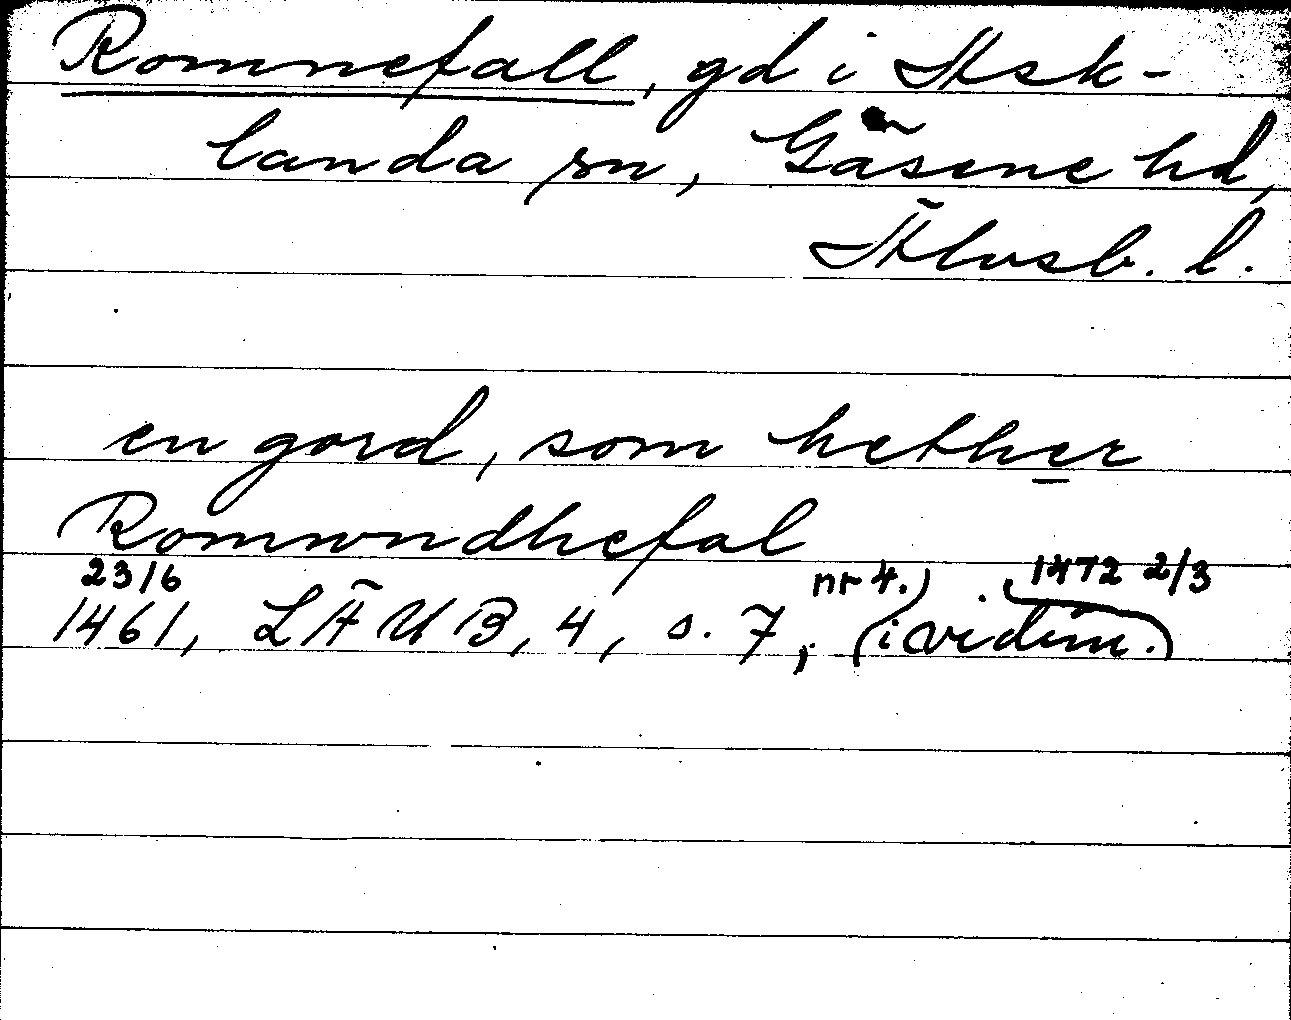 Romnefall, gd i Ask-
landa sn, Gäsene hd,
Älvsb. l.
en gord, som hether
Romwndhefal
23/6 nr 4. 1472 2/3
1461, LÄUB, 4, s. 7, (i vidim.)